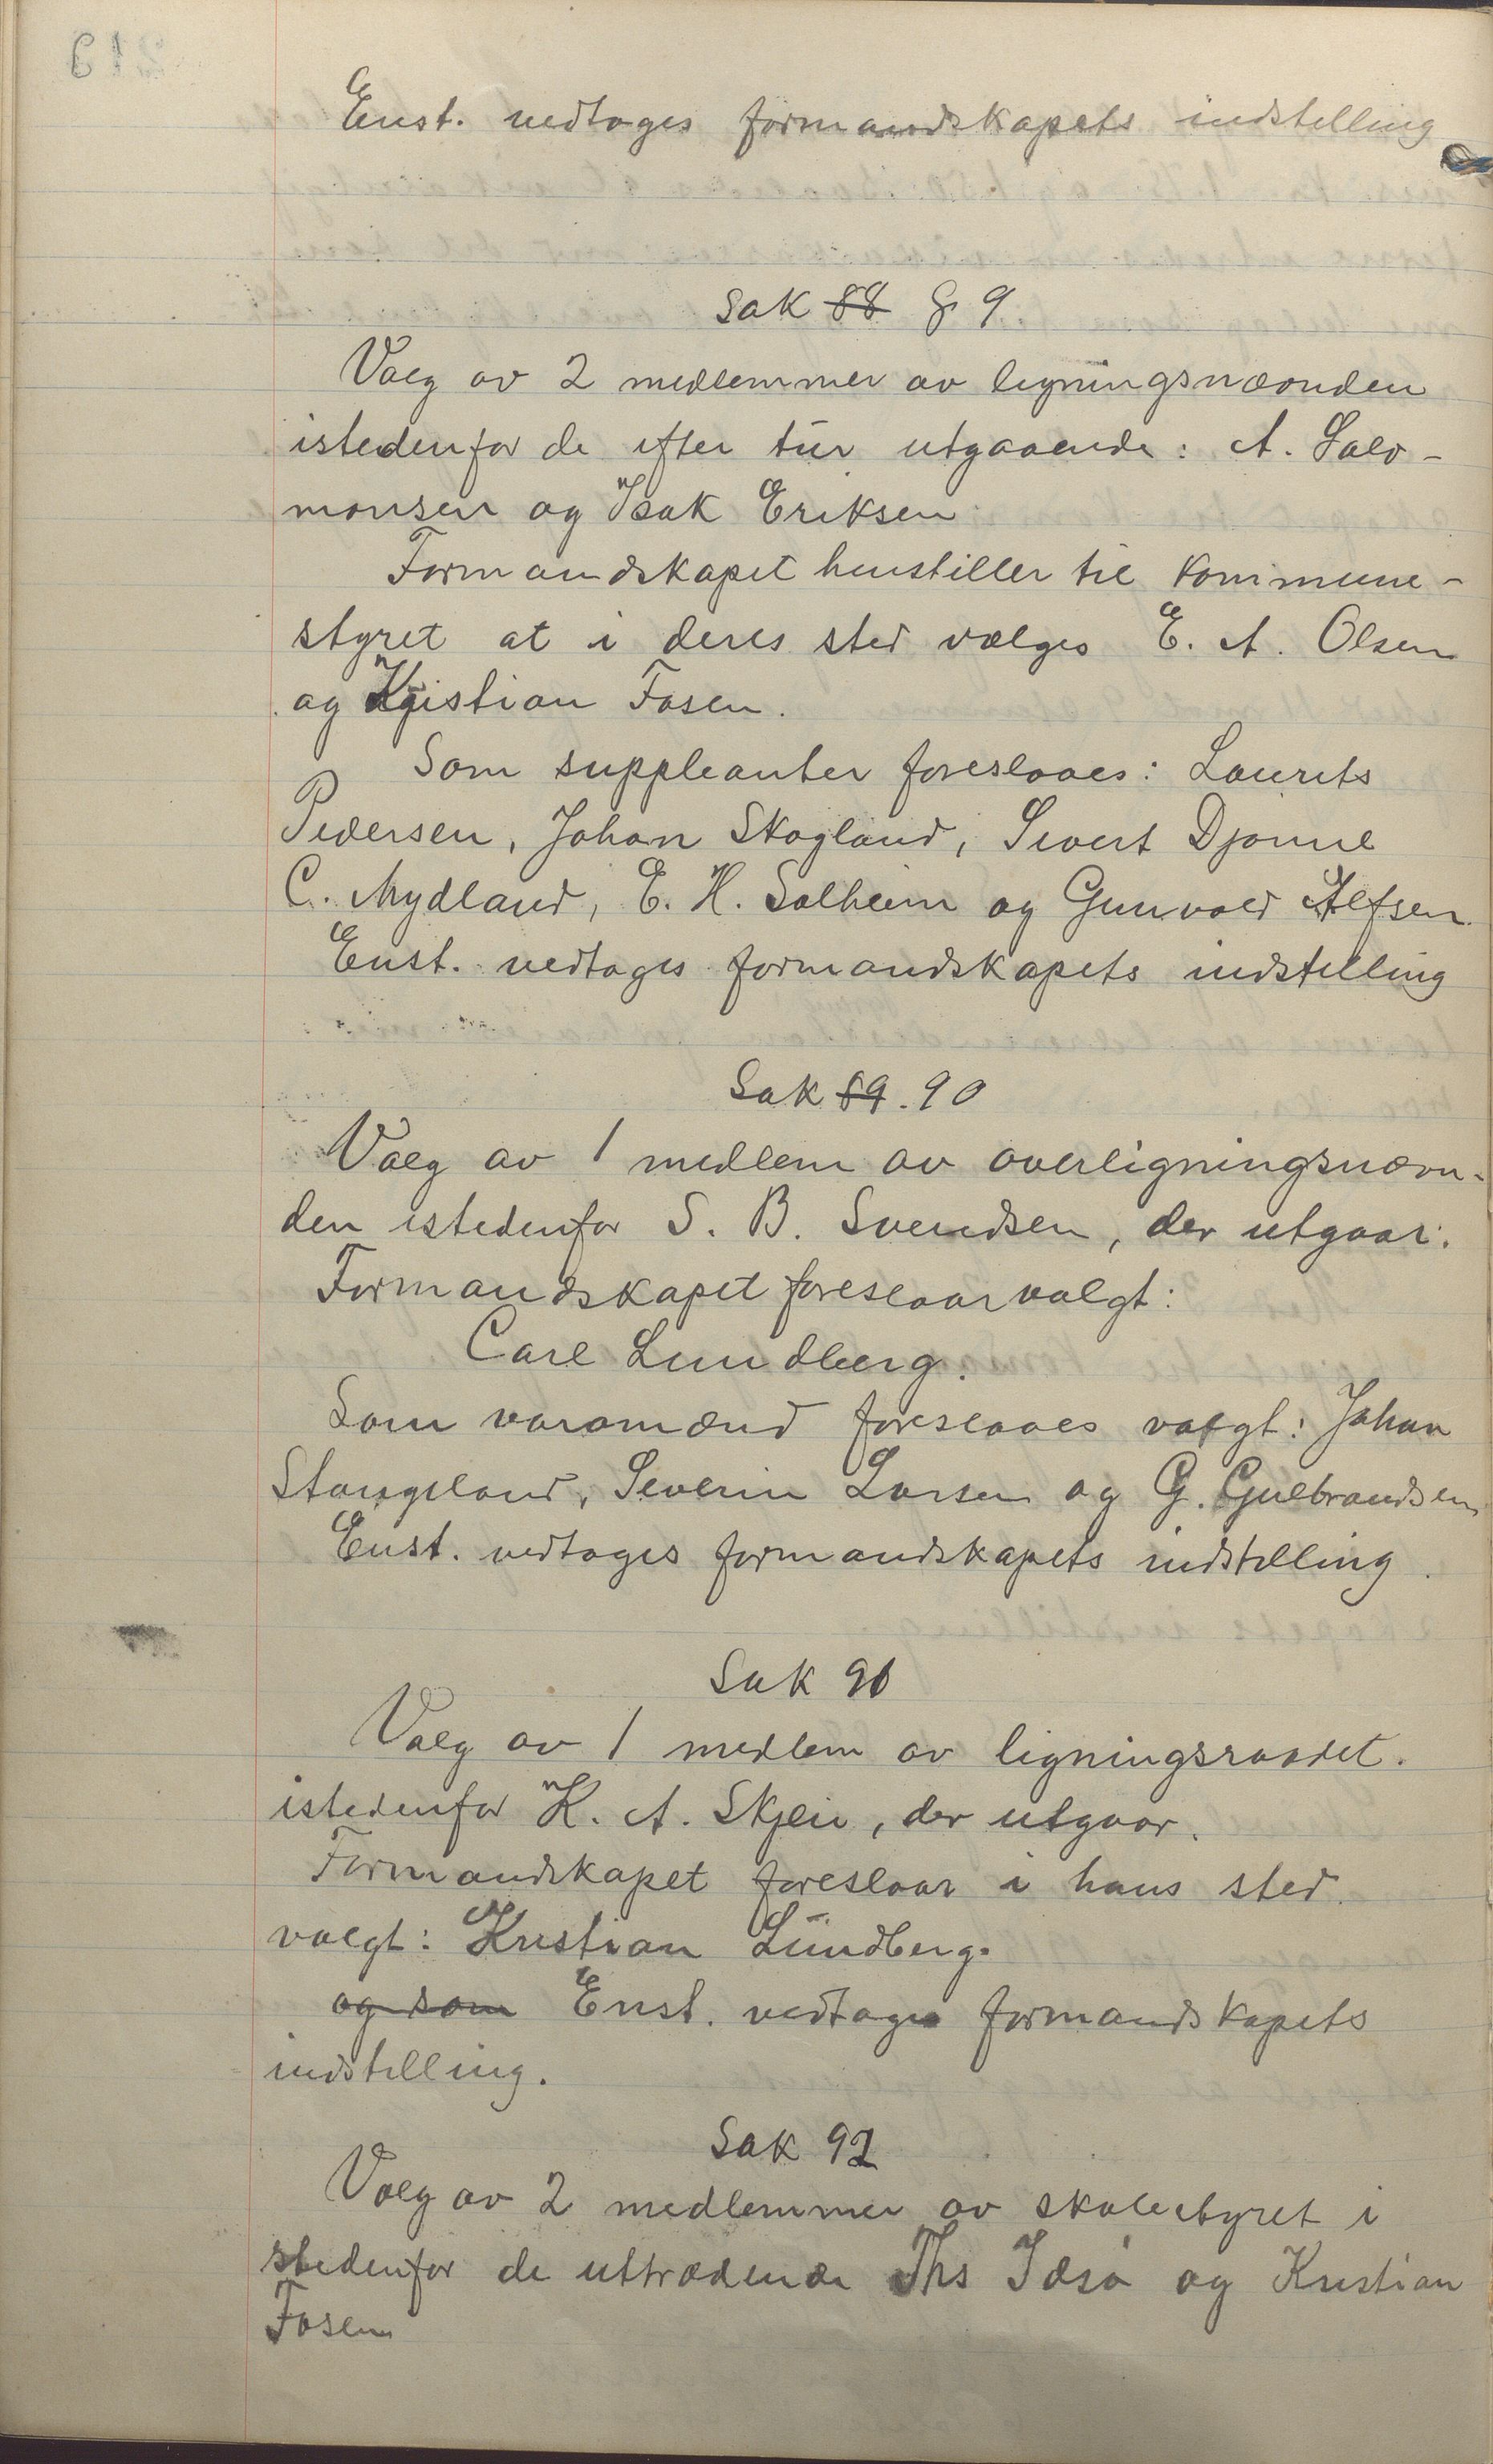 Enst. vedtoges formandskapets indstilling
Sak 88 89.
Valg av 2 medlemmer av ligningsnævnden
istedenfor de efter tur utgaaende: A. Salo-
monsen og Isak Eriksen
Formandskapet henstiller til kommune-
styret at i deres sted vælges E. A. Olsen
og Kristian Fosen.
Som suppleanter foreslaaes: Laurits
Pedersen, Johan Skogland, Sivert Djønne
C. Mydland, E. H. Solheim og Gunvald Alfsen.
Enst. vedtoges formandskapets indstilling
Sak 89. 90
Valg av 1 medlem av overligningsnævn-
den istedenfor S. B. Svendsen, der utgaar.
Formandskapet foreslaar valgt:
Carl Lundberg.
Som varamænd foreslaaes valgt: Johan
Stangeland, Severin Larsen og G. Gulbrandsen
Enst. vedtoges formandskapets indstilling.
Sak 91
Valg av 1 medlem av ligningsraadet.
istedenfor K. A. Skjen, der utgaar.
Formandskapet foreslaar i hans sted
valgt: Kristian Lundberg.
og som Enst. vedtoges formandskapets
indstilling.
Sak 92
Valg av 2 medlemmer av skolestyret i
stedenfor de uttrædende Ths Idsø og Kristian
Fosen